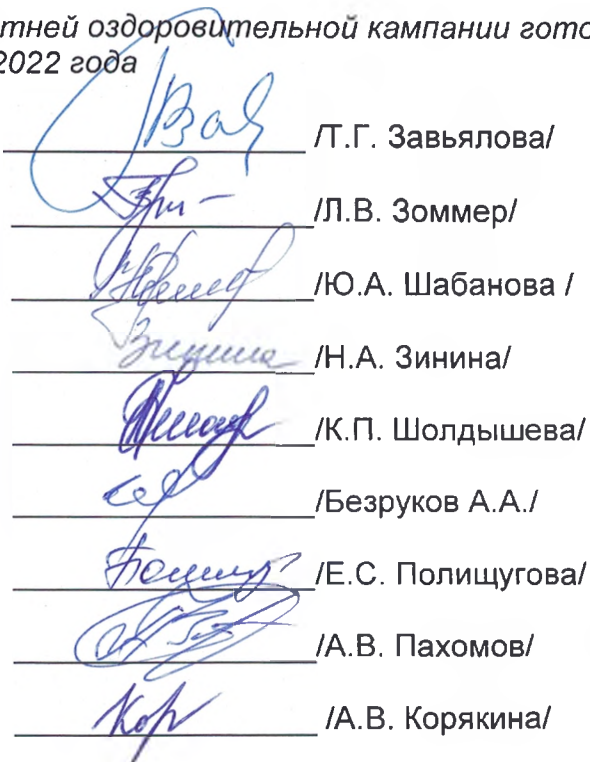 тней оздоровительной кампании гото
2022 года
/Т.Г. Завьялова/
/Л.В. Зоммер/
/Ю.А. Шабанова /
Зинина /Н.А. Зинина/
/К.П. Шолдышева/
/Безруков А.А./
/Е.С. Полищугова/
/А.В. Пахомов/
Кор /А.В. Корякина/